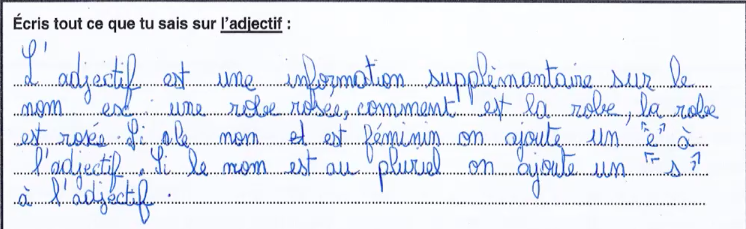 Écris tout ce que tu sais sur l'adjectif :
L'adjectif est une information supplémantaire sur le
nom est une robe rosée, comment est la robe, la robe
est rosée. Si le nom et est féminin on ajoute un "e" à
l'adjectif. Si le nom est au pluriel on ajoute un "s"
à l'adjectif.